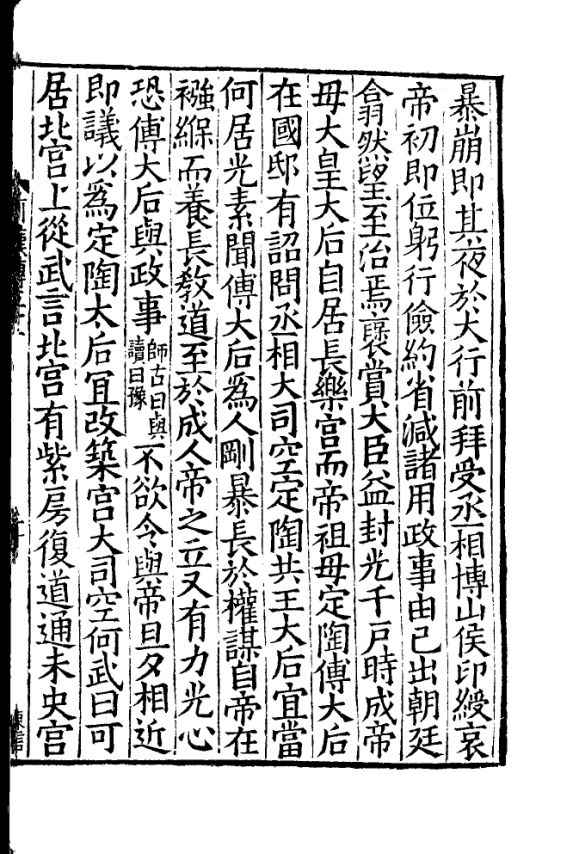 暴崩即其夜於大行前拜受丞相博山侯印綬哀
帝初即位躬行儉約省減諸用政事由己出朝廷
翕然望至治焉襃賞大臣益封光千戸時成帝
母大皇大后自居長樂宫而帝祖母定陶傅大后
在國邸有詔問丞相大司空定陶共王大后宜當
何居光素聞傅大后爲人剛暴長於權謀自帝在
襁緥而養長敎道至於成人帝之立又有力光心
恐傅大后與政事師古曰與讀曰豫不欲令與帝旦夕相近
即議以爲定陶太后宜改築宫大司空何武曰可
居北宫上從武言北宫有紫房復道通未央宫